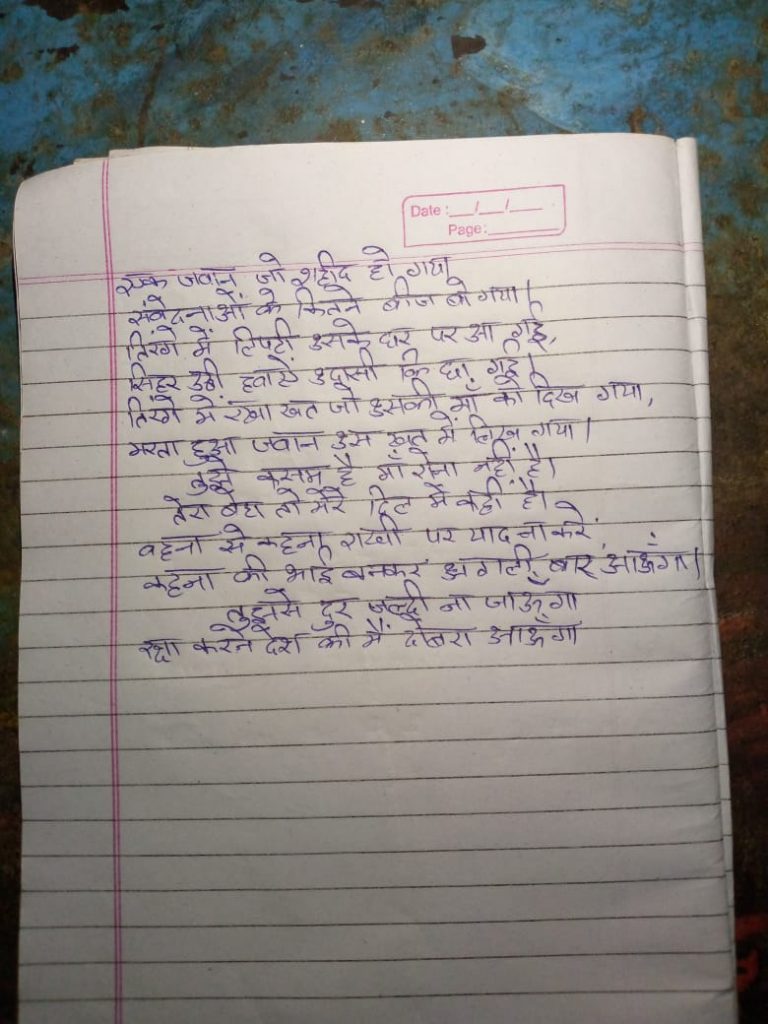 Date :__/__/___
Page:________
एक जवान जो शहीद हो गया
संवेदनाओं के कितने बीज बो गया।
तिरंगे में लिपटी उसके घर पर आ गई,
सिहर उठी हवाएँ उदासी कि छा गई।
तिरंगे में रखा खत जो उसकी माँ को दिख गया,
मरता हुआ जवान उस खत में लिख गया।
तुझे कसम है माँ रोना नहीं है।
तेरा बेटा तो मेरे दिल में कही है।
बहना से कहना राखी पर याद ना करे,
कहना की भाई बनकर अगली बार आऊँगा।
तुझसे दुर जल्दी ना जाऊँगा
रक्षा करने देश की मैं दोबरा आऊँगा